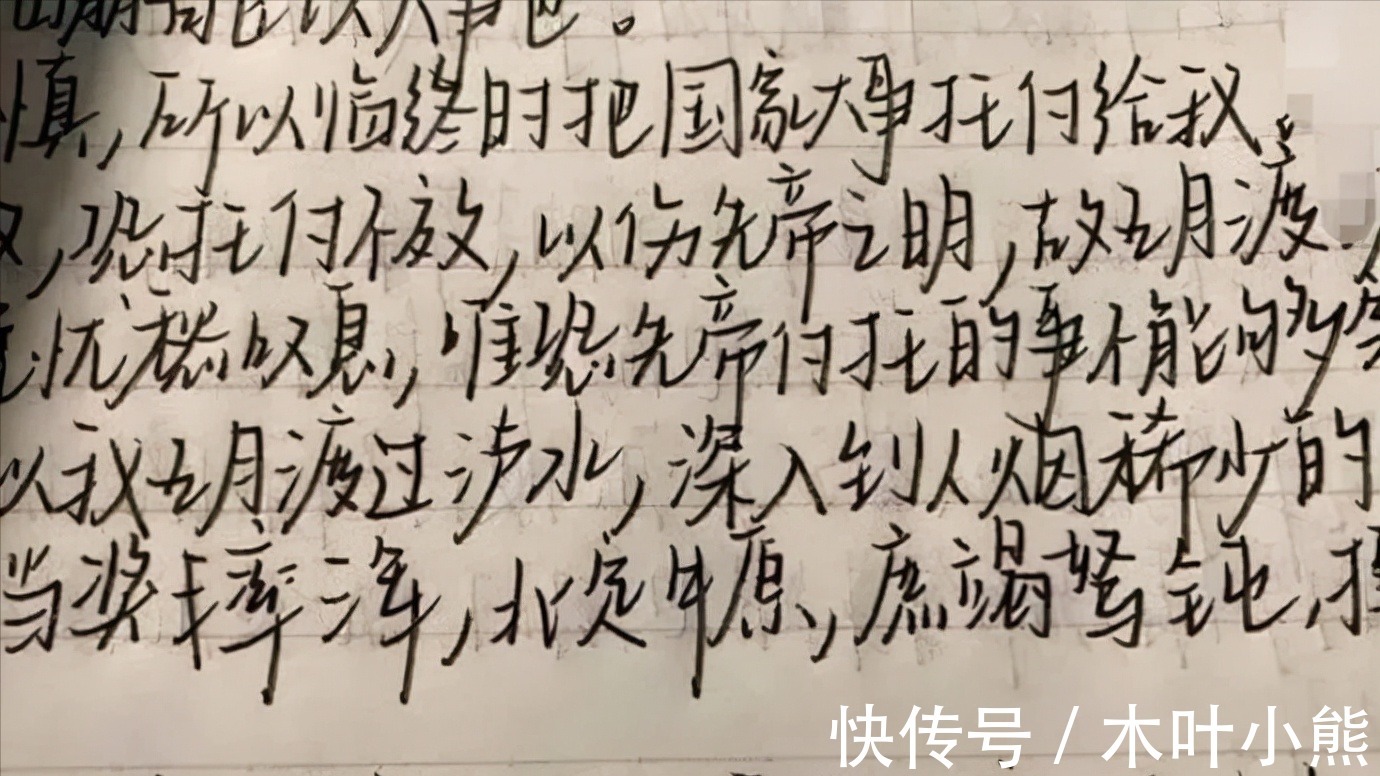 以大事也。
慎，所以临终时把国家大事托付给我。
叹，恐托付不效，以伤先帝之明，故五月渡
忧愁叹息，唯恐先帝付托的事不能够
以我五月渡过泸水，深入到人烟稀少的
当奖率三军，北定中原，庶竭驽钝，
快传号 / 木叶小熊